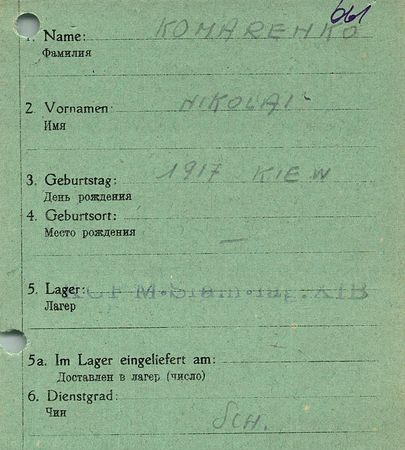 661
1. Name: KOMARENKO
Фамилия
2. Vornamen: NIKOLAI
Имя
3. Geburtstag: 1917 KIEW
День рождения
4. Geburtsort:
Место рождения
—
5. Lager:
Лагер
5a. Im Lager eingeliefert am:
Доставлен в лагер (число)
6. Dienstgrad:
Чин
SCH.